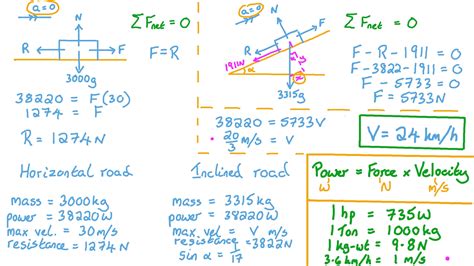 a=0
ΣFnet = 0
N
R
F
3000g
F=R
38220 = F(30)
1274 = F
R = 1274N
Horizontal road
mass = 3000kg
power = 38220W
max vel. = 30m/s
resistance = 1274N
a=0
ΣFnet = 0
N
R
F
1911N
α
3315g
F - R - 1911 = 0
F - 3822 - 1911 = 0
F - 5733 = 0
F = 5733N
38220 = 5733V
20/3 m/s = V
V = 24 km/h
Inclined road
mass = 3315kg
power = 38220W
max vel. = V m/s
resistance = 3822N
sin α = 1/17
Power = Force x Velocity
W N m/s
1 hp = 735W
1 Ton = 1000kg
1 kg-wt = 9.8N
3.6 km/h = 1 m/s